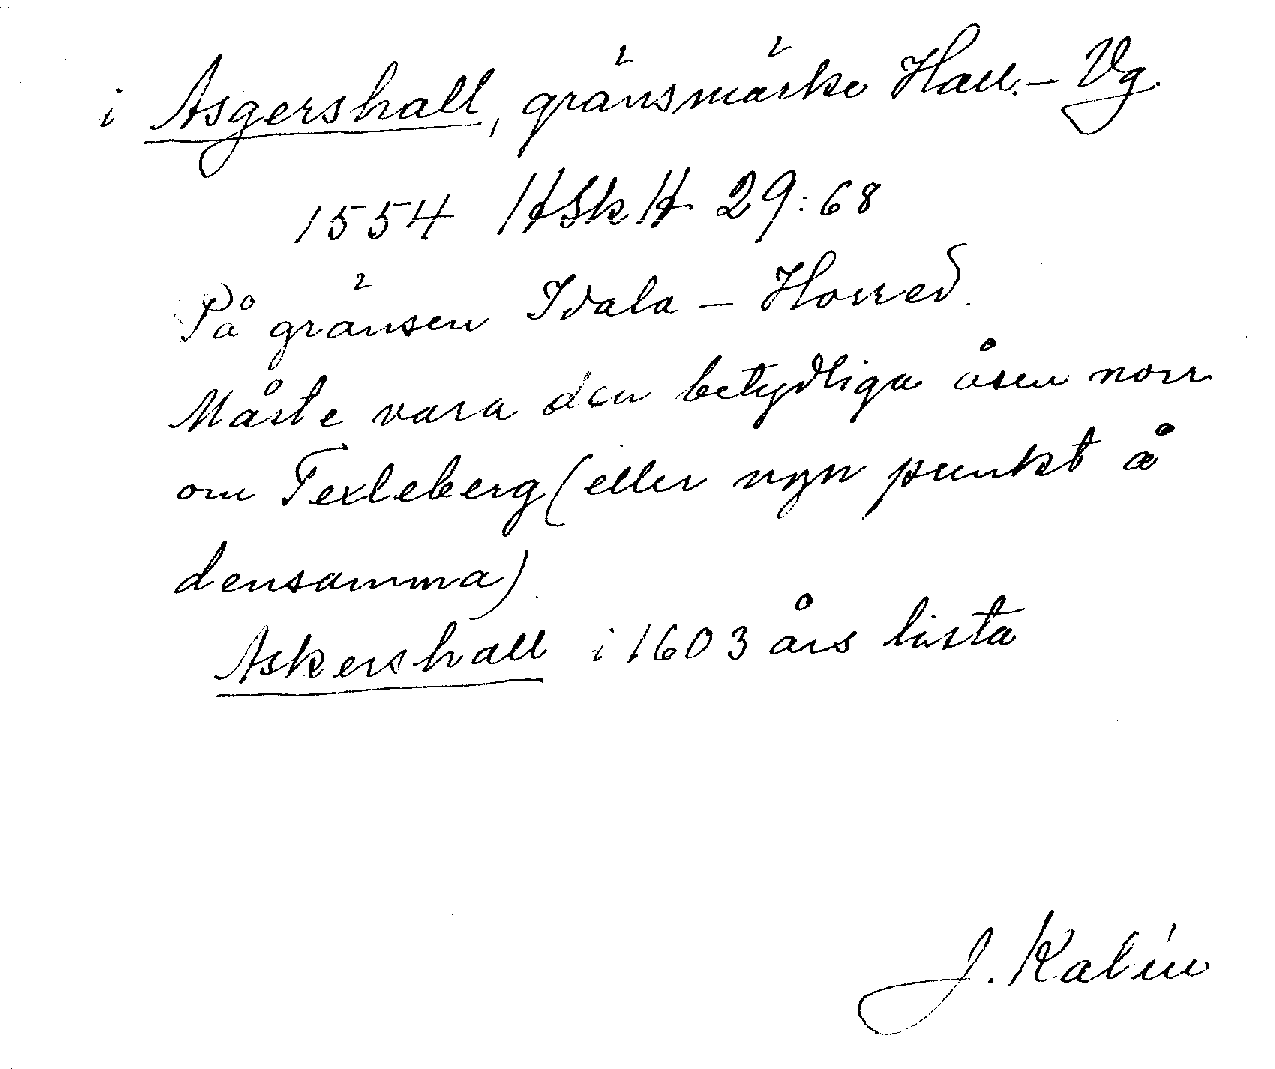 i Asgershall, gränsmärke Hall.– Vg.
1554 HSkH 29:68
På gränsen Idala – Horred.
Måste vara den betydliga åsen norr
om Texleberg (eller ngn punkt å
densamma)
Askershall i 1603 års lista
J. Kalén